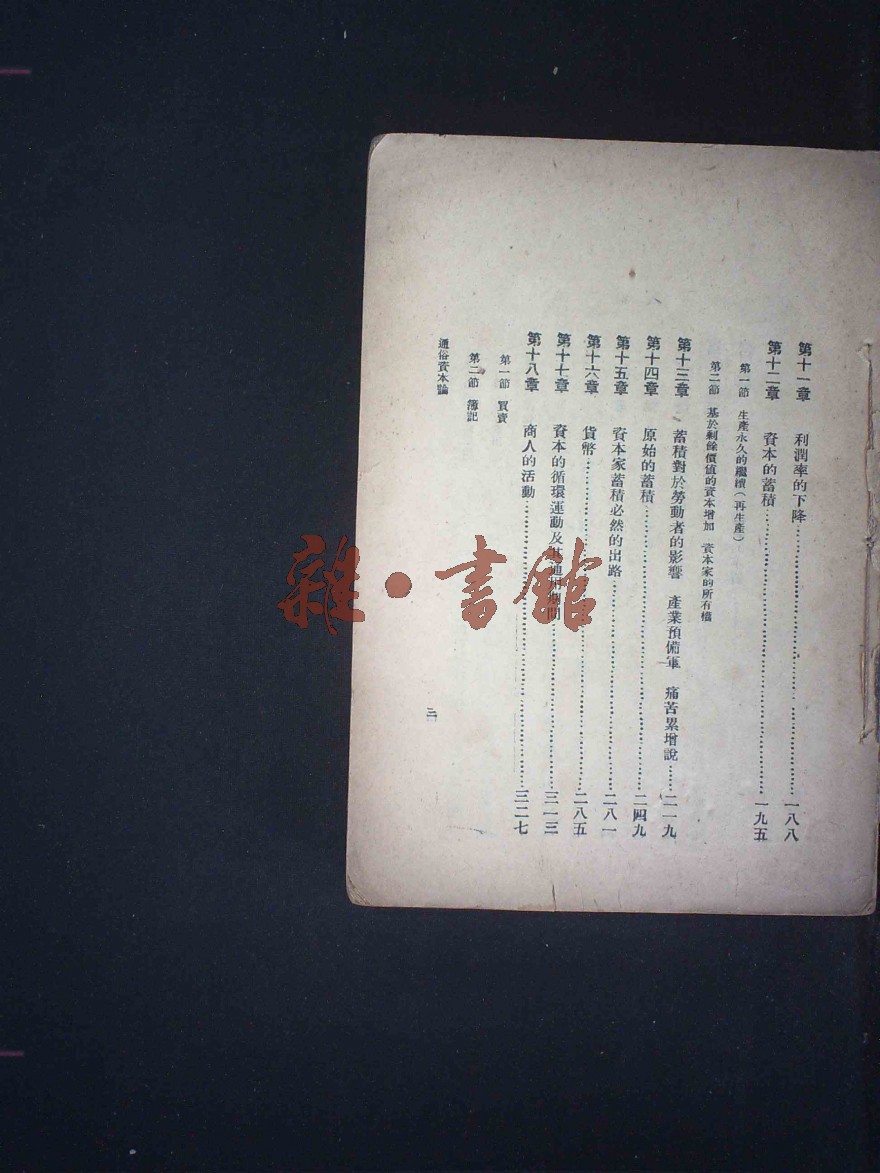 第十一章 利潤率的下降……………………一八八
第十二章 資本的蓄積……………………一九五
第一節 生產永久的繼續(再生產)
第二節 基於剩餘價值的資本增加 資本家的所有權
第十三章 蓄積對於勞動者的影響 產業預備軍 痛苦累增說……二一九
第十四章 原始的蓄積……………………二四九
第十五章 資本家蓄積必然的出路……………………二八一
第十六章 貨幣……………………二八五
第十七章 資本的循環運動及其通用期間……………………三一三
第十八章 商人的活動……………………三二七
第一節 買賣
第二節 簿記
通俗資本論
二
雜·書館